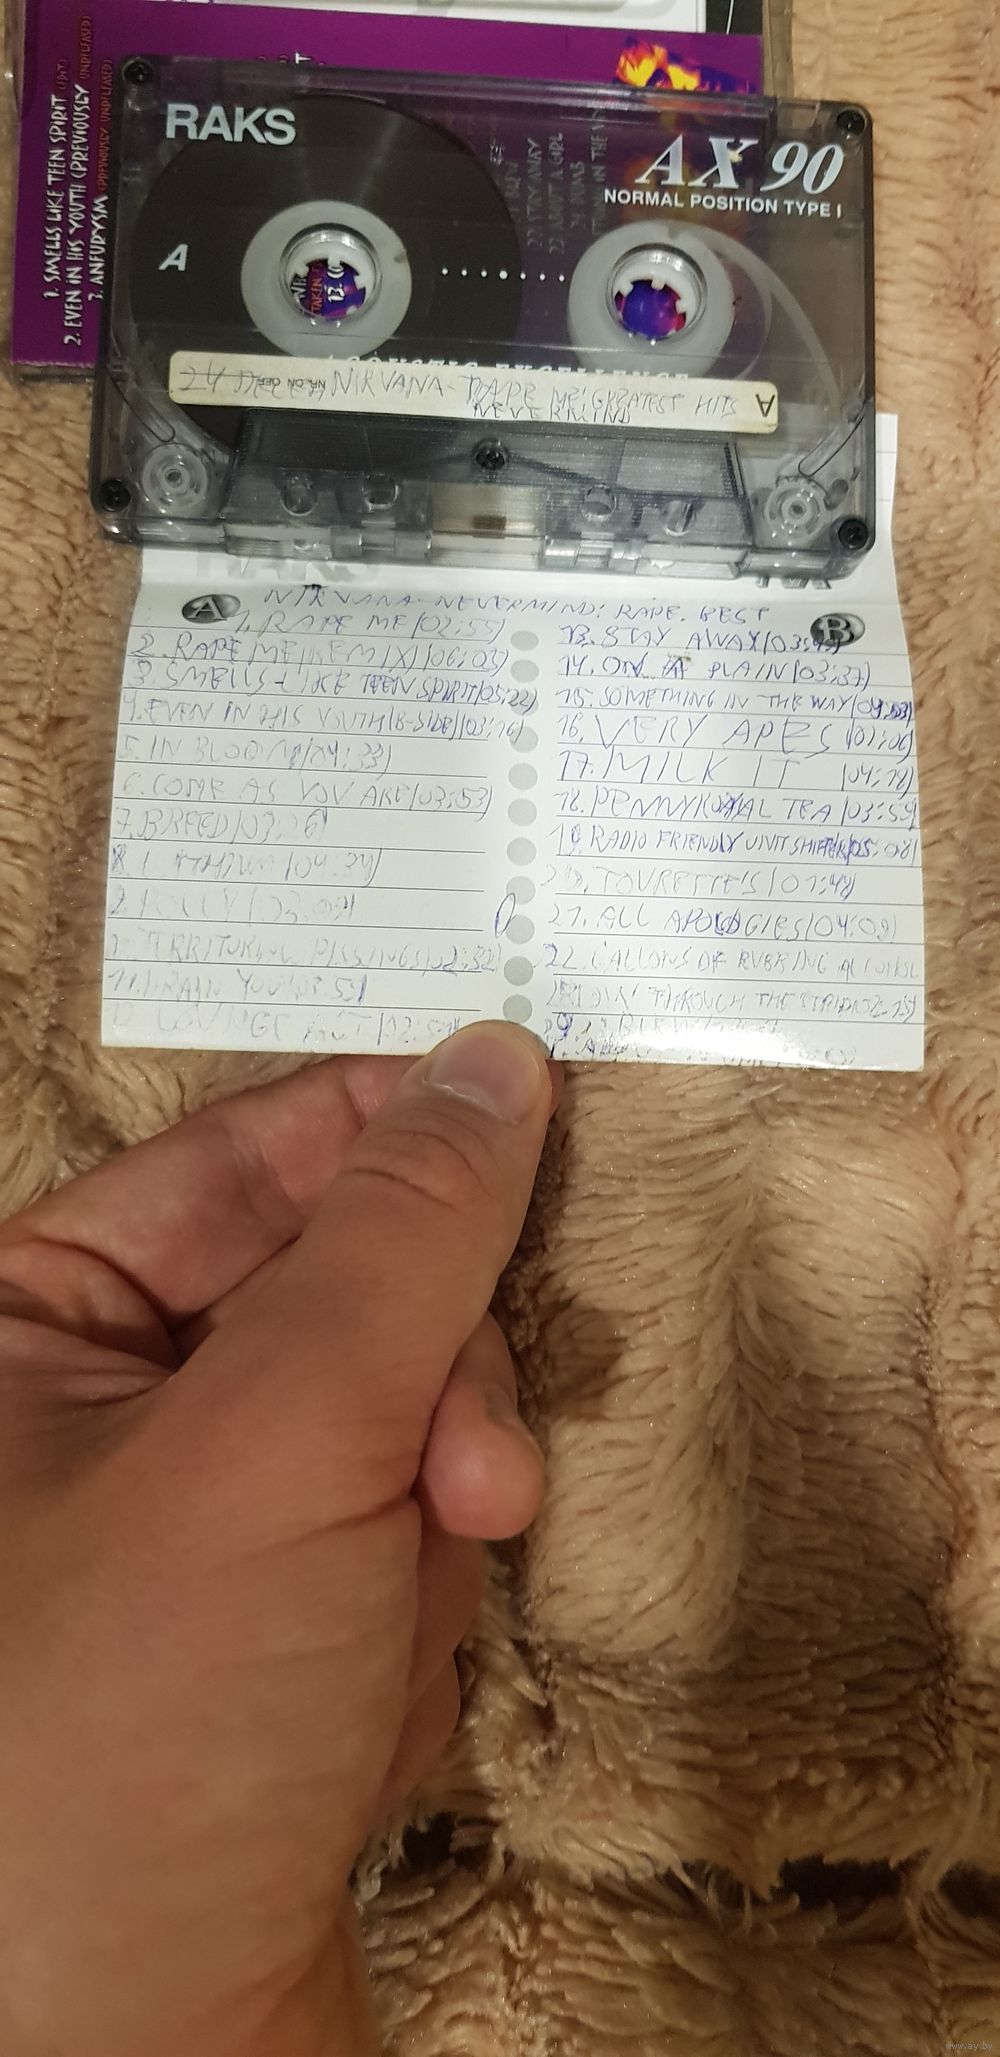 1. SMELLS LIKE TEEN SPIRIT (EDIT)
2. EVEN IN HIS YOUTH (PREVIOUSLY UNRELEASED)
3. ANEURYSM (PREVIOUSLY UNRELEASED)
RAKS
AX 90
NORMAL POSITION TYPE I
A
22 STAY AWAY
22 ABOUT A GIRL
24 DUMB
IN THE
TAKEN
13.
24 NIRVANA - RAPE ME! GREATEST HITS
NEVERMIND
A
A
NIRVANA - NEVERMIND! RAPE. BEST
B
1. RAPE ME (02:55)
2. RAPE ME (REMIX) (06:03)
3. SMELLS LIKE TEEN SPIRIT (05:22)
4. EVEN IN HIS YOUTH (B-SIDE) (03:16)
5. IN BLOOM (04:33)
6. COME AS YOU ARE (03:53)
7. BREED (03:16)
8. LITHIUM (04:24)
9. POLLY
TERRITORIAL PISSINGS (02:32)
11. DRAIN YOU (03:53)
12. LOUNGE ACT
13. STAY AWAY
14. ON A PLAIN (03:37)
15. SOMETHING IN THE WAY
16. VERY APES (02:06)
17. MILK IT (04:18)
18. PENNYROYAL TEA (03:59)
19. RADIO FRIENDLY UNIT SHIFTER (05:08)
20. TOURETTE'S (01:48)
21. ALL APOLOGIES (04:09)
22. GALLONS OF RUBBING ALCOHOL
THROUGH THE STRIP
BLEW
www.ay.by